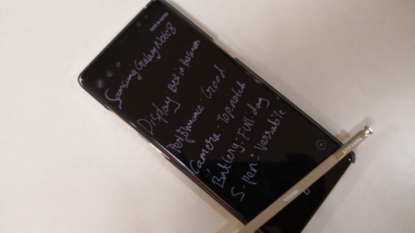 Samsung Galaxy Note 8
Display: Best in business
Performance: Good
Camera: Top notch
Battery: Full day
S-pen: Versatile